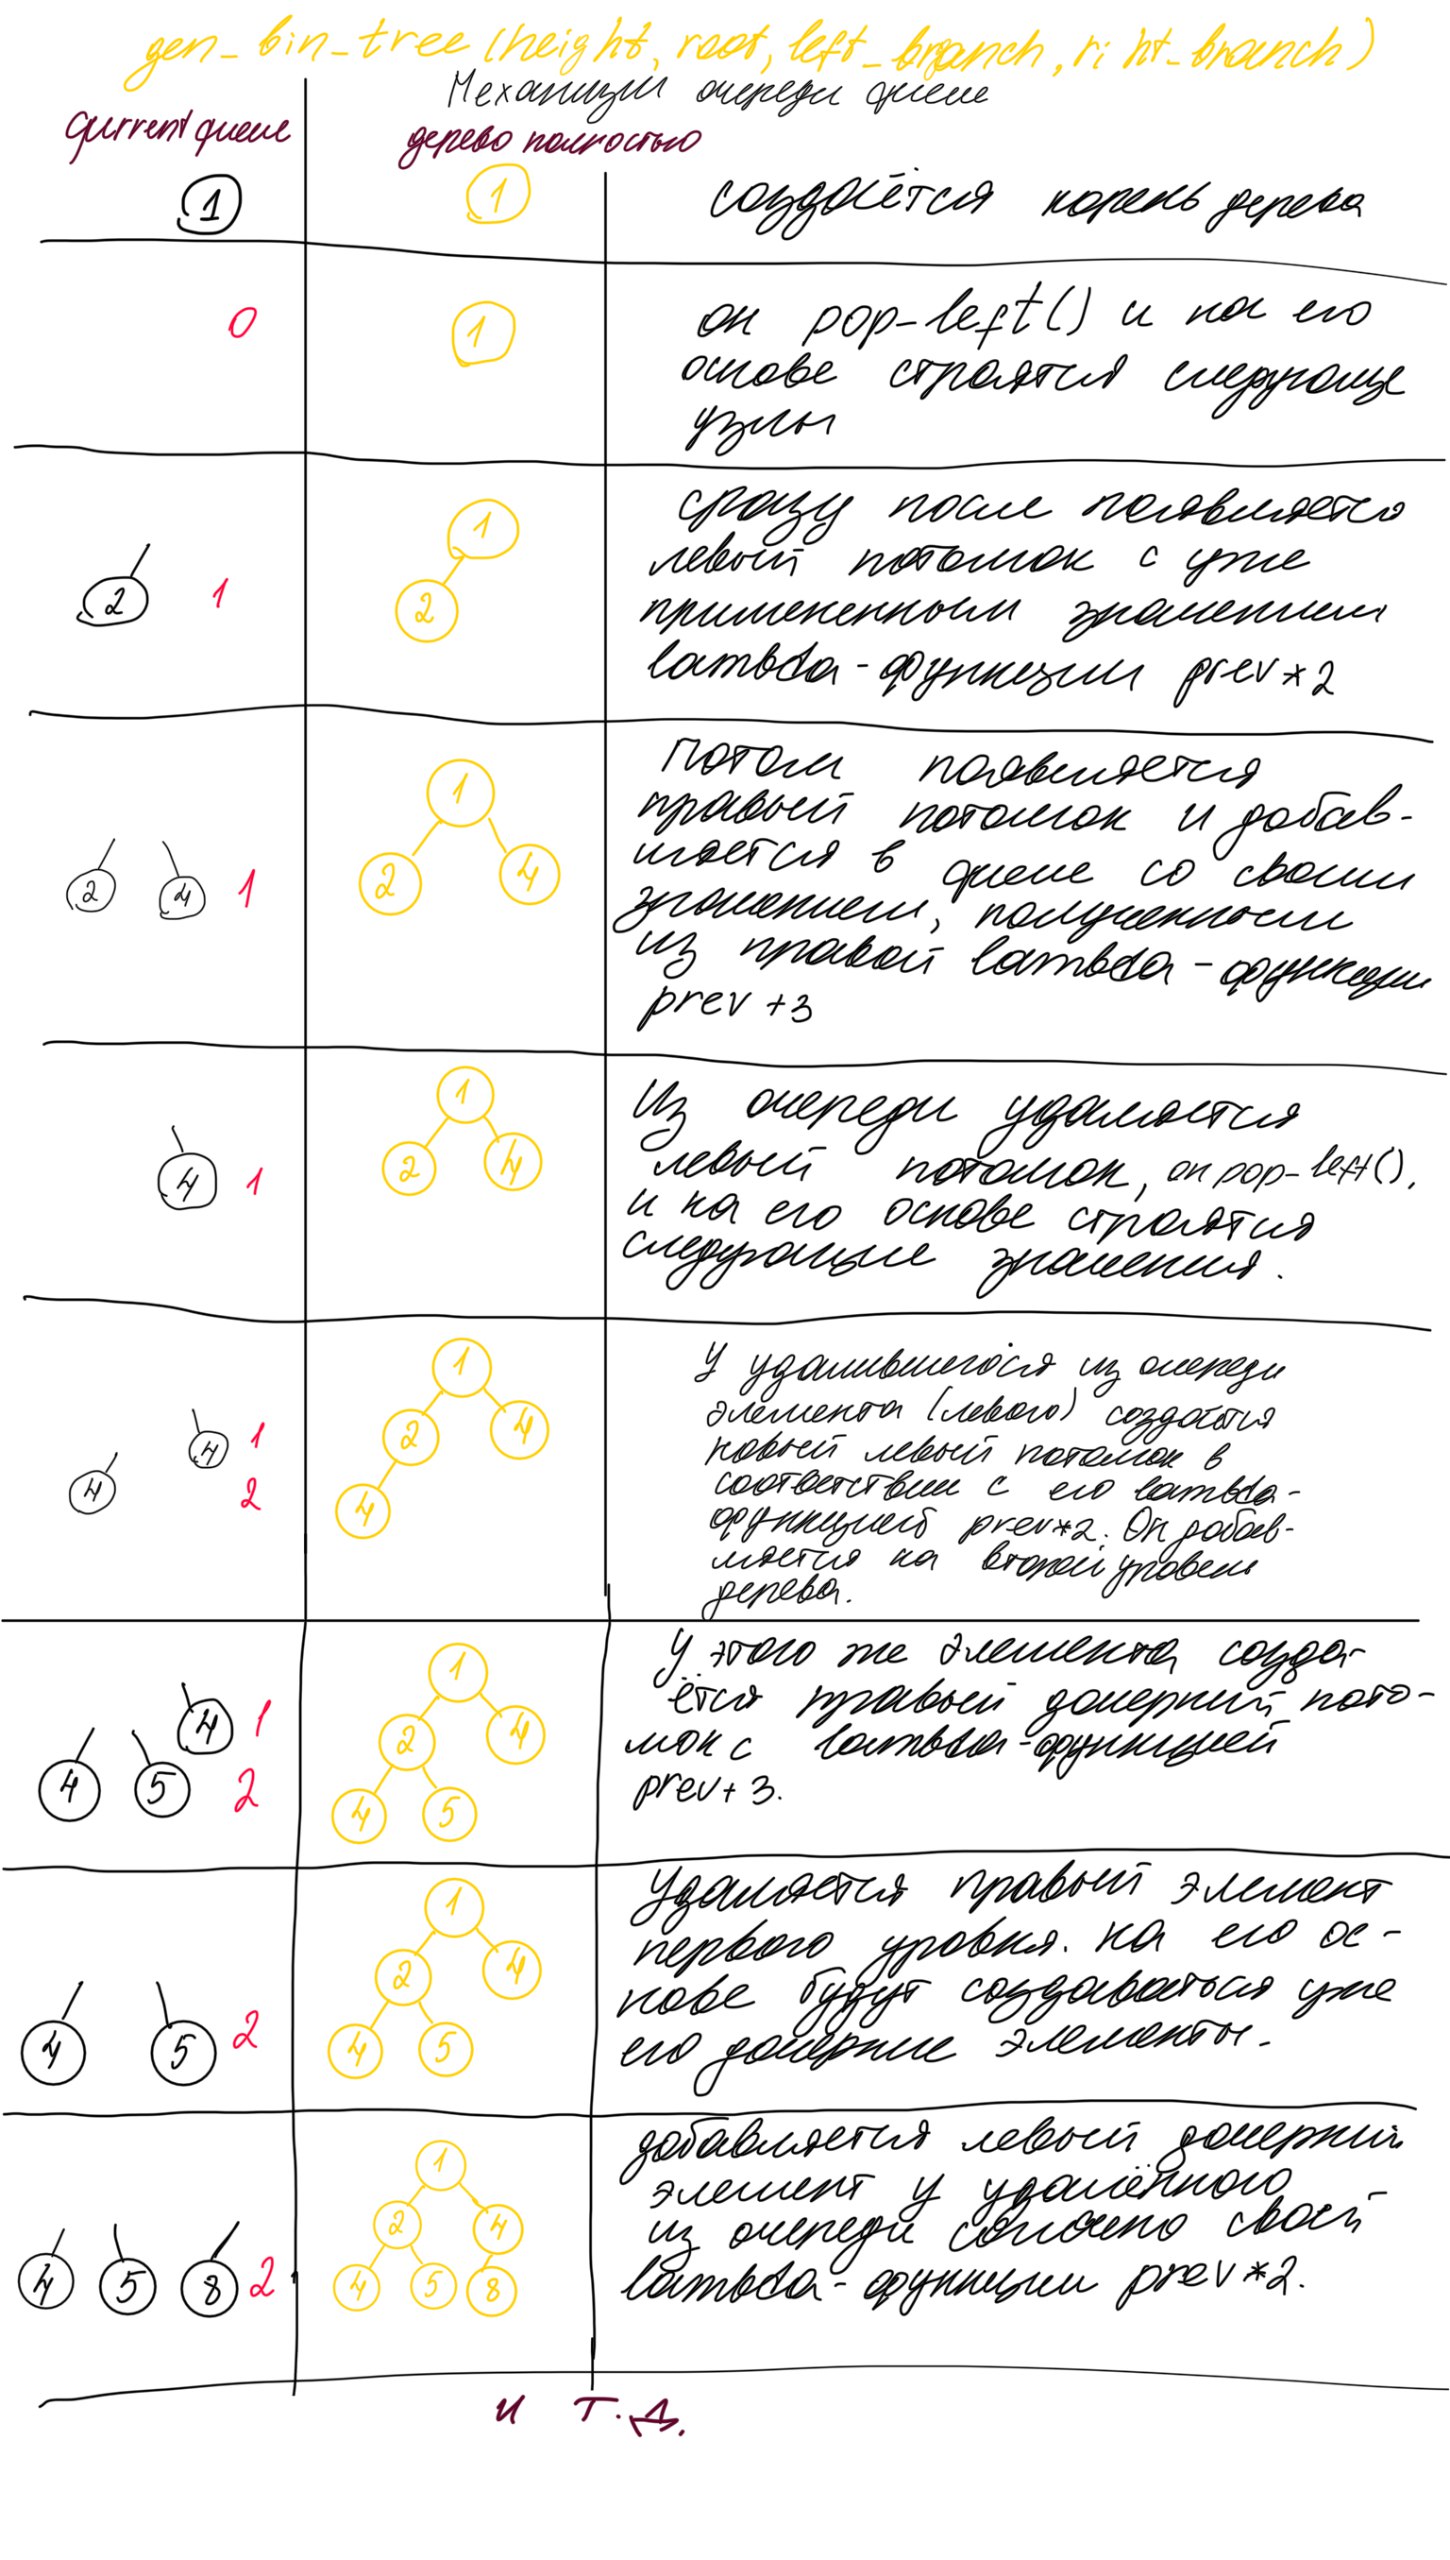 gen_bin_tree (height, root, left_branch, right_branch)
Механизм очереди queue
current queue
дерево полностью
1
1
создаётся корень дерева
0
1
он pop-left() и на его
основе строятся следующие
узлы
2 1
1
2
сразу после появляется
левый потомок с уже
примененным значением
lambda-функции prev*2
2 4 1
1
2 4
Потом появляется
правый потомок и добав-
ляется в queue со своим
значением, полученным
из правой lambda-функции
prev +3
4 1
1
2 4
Из очереди удаляется
левый потомок, он pop-left(),
и на его основе строятся
следующие значения.
4 1
4 2
1
2 4
4
У удалившегося из очереди
элемента (левого) создаётся
новый левый потомок в
соответствии с его lambda-
функцией prev*2. Он добав-
ляется на второй уровень
дерева.
4 1
4 5 2
1
2 4
4 5
У этого же элемента созда-
ётся правый дочерний пото-
мок с lambda-функцией
prev+3.
4 5 2
1
2 4
4 5
Удаляется правый элемент
первого уровня. На его ос-
нове будут создаваться уже
его дочерние элементы.
4 5 8 2
1
2 4
4 5 8
добавляется левый дочерний
элемент у удалённого
из очереди согласно своей
lambda-функции prev*2.
и т.д.